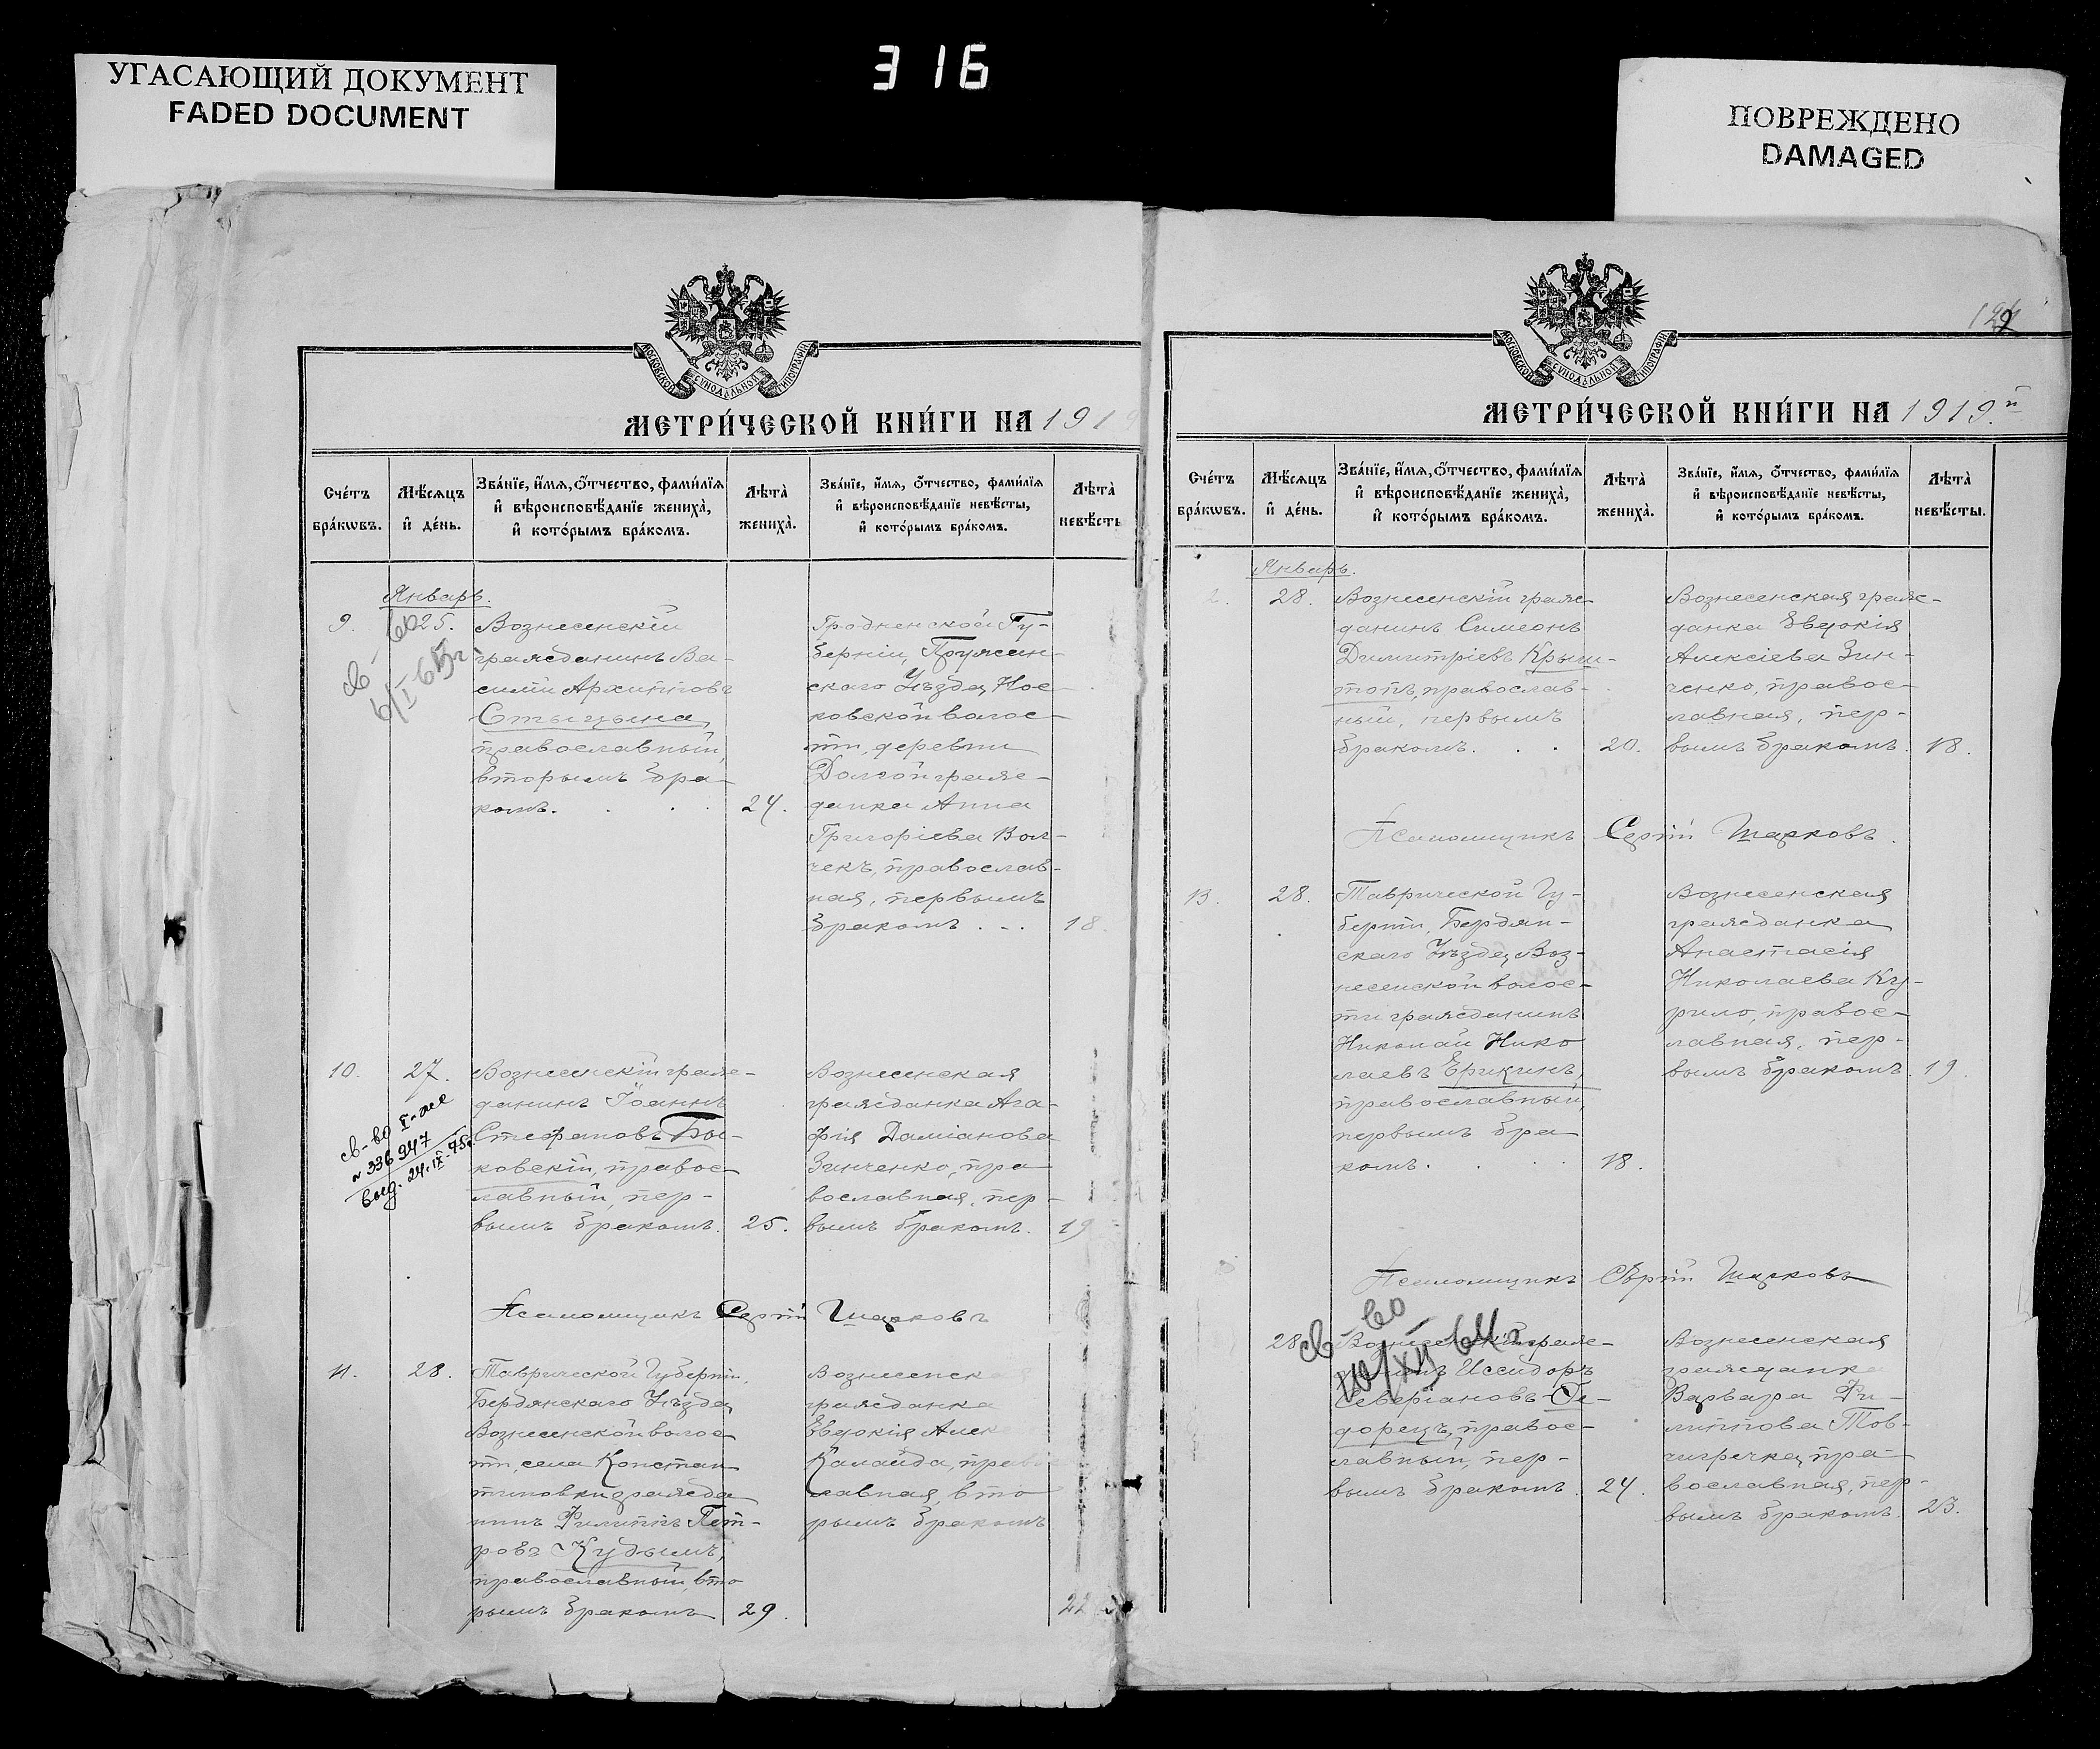 УГАСАЮЩИЙ ДОКУМЕНТ
FADED DOCUMENT
316
ПОВРЕЖДЕНО
DAMAGED
МОСКОВСКОЙ СѴНОДАЛЬНОЙ ТИПОГРАФІИ
МЕТРИ́ЧЕСКОЙ КНИ́ГИ НА 1919
Сче́тъ бра́кѡвъ.
Мѣ́сяцъ и҆ де́нь.
Зва́нїе, и҆́мя, ѻ҆́тчество, фами́лїя
и҆ вѣроисповѣ́данїе жениха̀,
и҆ кото́рымъ бра́комъ.
Лѣта̀ жениха̀.
Зва́нїе, и҆́мя, ѻ҆́тчество, фами́лїя
и҆ вѣроисповѣ́данїе невѣ́сты,
и҆ кото́рымъ бра́комъ.
Лѣта̀ невѣ́сты
Январь.
9. 25.
св-во
6/I 65г.
Вознесенскій
гражданинъ Ва-
силій Архиповъ
Стыцына,
православный,
вторымъ бра-
комъ. . . . 24.
Гродненской Гу-
берніи, Пружан-
скаго Уѣзда, Нос-
ковской волос-
ти, деревни
Долгой граж-
данка Анна
Григоріева Вол-
чекъ, православ-
ная, первымъ
бракомъ . . . 18.
10. 27.
св-во I-ое
№ 336947
выд. 24.IX-75г.
Вознесенскій граж-
данинъ Іоаннъ
Стефановъ Бы-
ковскій, правос-
лавный, пер-
вымъ бракомъ. 25.
Вознесенская
гражданка Ага-
фія Даміанова
Зинченко, пра-
вославная, пер-
вымъ бракомъ. 19
Псаломщикъ Сергій Шарковъ
11. 28.
Таврической Губерніи,
Бердянскаго Уѣзда,
Вознесенской волос-
ти, села Констан
тиновки гражда
нинъ Филиппъ Пет-
ровъ Кудымъ,
православный, вто
рымъ бракомъ 29.
Вознесенск
гражданка
Евдокія Алек
Калайда, прав
лавная, вто
рымъ бракомъ
22
129
МОСКОВСКОЙ СѴНОДАЛЬНОЙ ТИПОГРАФІИ
МЕТРИ́ЧЕСКОЙ КНИ́ГИ НА 1919.й
Сче́тъ бра́кѡвъ.
Мѣ́сяцъ и҆ де́нь.
Зва́нїе, и҆́мя, ѻ҆́тчество, фами́лїя
и҆ вѣроисповѣ́данїе жениха̀,
и҆ кото́рымъ бра́комъ.
Лѣта̀ жениха̀.
Зва́нїе, и҆́мя, ѻ҆́тчество, фами́лїя
и҆ вѣроисповѣ́данїе невѣ́сты,
и҆ кото́рымъ бра́комъ.
Лѣта̀ невѣ́сты.
Январь.
2. 28.
Вознесенскій граж-
данинъ Симеонъ
Димитріевъ Крыш-
топъ, православ-
ный, первымъ
бракомъ. . . 20.
Вознесенская граж-
данка Евдокія
Алексіева Зин-
ченко, правос-
лавная, пер-
вымъ бракомъ. 18.
Псаломщикъ Сергій Шарковъ.
13. 28.
Таврической Гу-
берніи, Бердян-
скаго Уѣзда, Воз-
несенской волос-
ти гражданинъ
Николай Нико
лаевъ Ерикинъ,
православный,
первымъ бра
комъ. . . . 18.
Вознесенская
гражданка
Анастасія
Николаева Ку-
рило, правос-
лавная, пер-
вымъ бракомъ. 19.
Псаломщикъ Сергій Шарковъ
28.
св-во
10/XII 64г.
Вознесенскій граж-
данинъ Исидоръ
Северіановъ Фе-
дорецъ, правос-
лавный, пер-
вымъ бракомъ. 24.
Вознесенская
гражданка
Варвара Фи-
липпова Тов-
чигречка, пра-
вославная, пер-
вымъ бракомъ. 23.